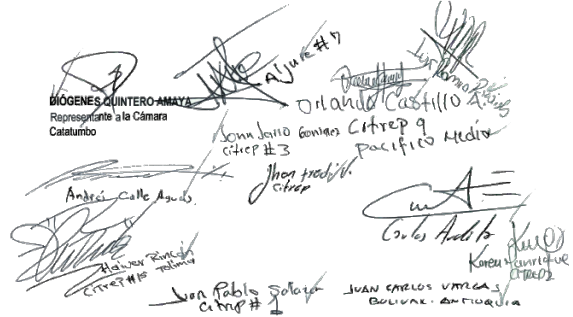 Aljure #7
Luis Ramiro
DIÓGENES QUINTERO AMAYA
Representante a la Cámara
Catatumbo
Orlando Castillo A.
Citrep 9
Pacífico Medio
John Jairo González
Citrep #3
Jhon Fredi
Citrep
Andrés Calle Aguas
Carlos Ardila
Karen Manrique
Citrep 2
Haiver Rincón
Citrep #15 Tolima
Juan Pablo Salazar
Citrep # 1
JUAN CARLOS VARGAS
BOLIVAR - ANTIOQUIA